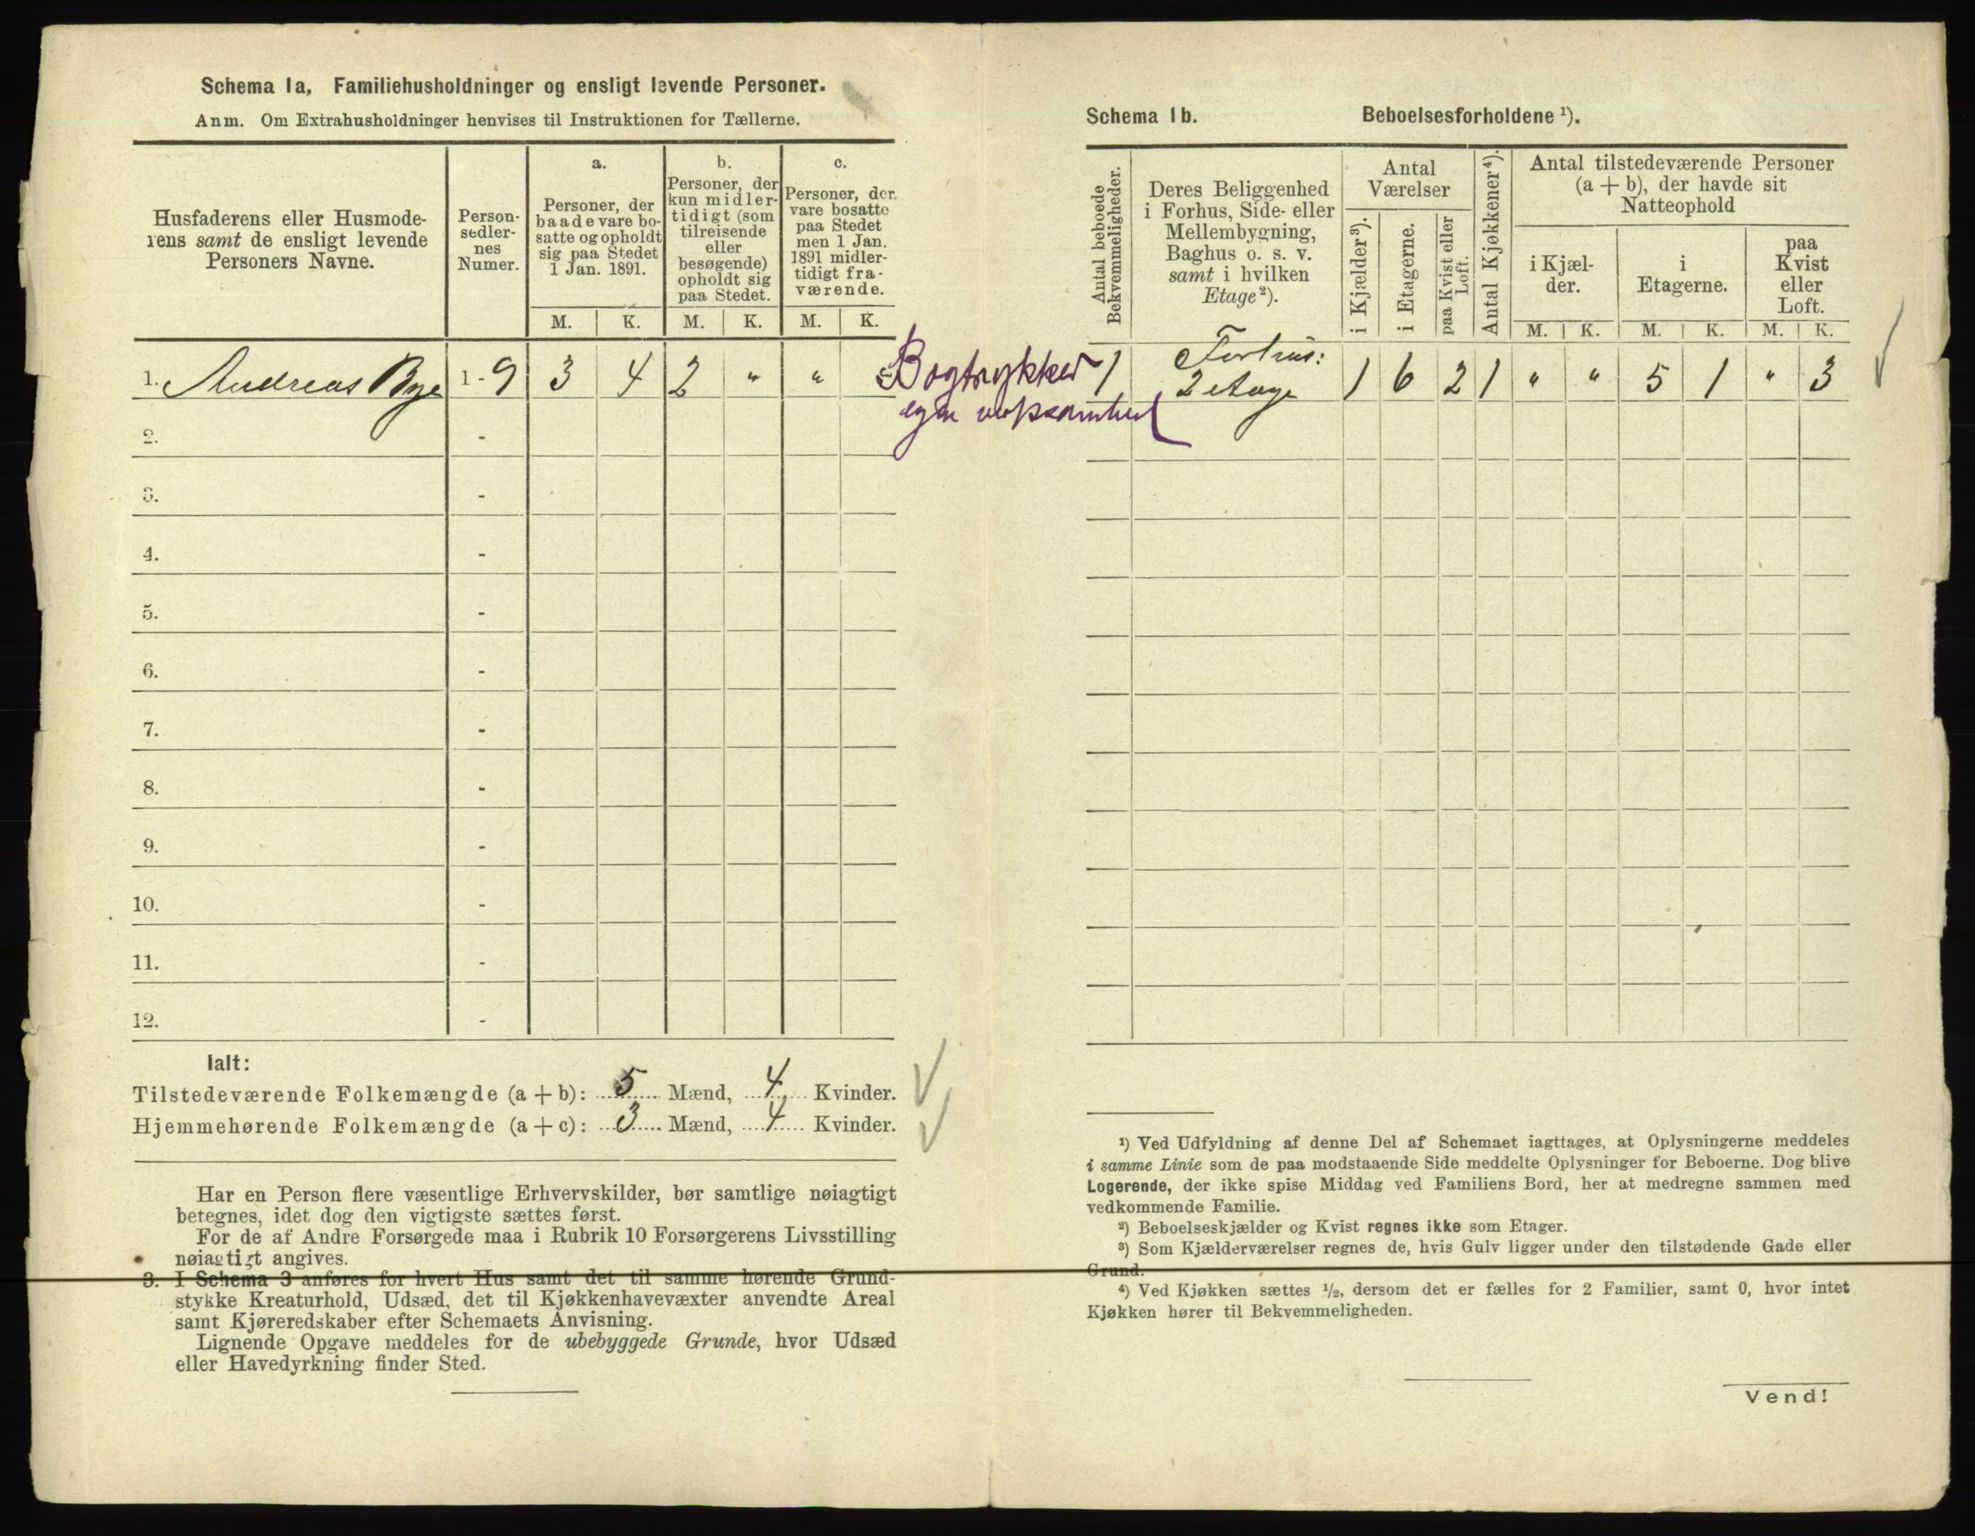 Schema 1a, Familiehusholdninger og ensligt levende Personer.
Anm. Om Extrahusholdninger henvises til Instruktionen for Tællerne.
Husfaderens eller Husmode-
rens samt de ensligt levende
Personers Navne.
Person-
sedler-
nes
Numer.
a.
Personer, der
baade vare bo-
satte og opholdt
sig paa Stedet
1 Jan. 1891.
b.
Personer, der
kun midler-
tidigt (som
tilreisende
eller
besøgende)
opholdt sig
paa Stedet.
c.
Personer, der
vare bosatte
paa Stedet
men 1 Jan.
1891 midler-
tidigt fra-
værende.
M. K. M. K. M. K.
1. Andreas Bye 1 - 9 3 4 2 " " "
Bogtrykker
egen virksomhed
2. -
3. -
4. -
5. -
6. -
7. -
8. -
9. -
10. -
11. -
12. -
Ialt:
Tilstedeværende Folkemængde (a + b): 5 Mænd, 4 Kvinder.
Hjemmehørende Folkemængde (a + c): 3 Mænd, 4 Kvinder.
Har en Person flere væsentlige Erhvervskilder, bør samtlige nøiagtigt
betegnes, idet dog den vigtigste sættes først.
For de af Andre Forsørgede maa i Rubrik 10 Forsørgerens Livsstilling
nøiagtigt angives.
3. I Schema 3 anføres for hvert Hus samt det til samme hørende Grund-
stykke Kreaturhold, Udsæd, det til Kjøkkenhavevæxter anvendte Areal
samt Kjøreredskaber efter Schemaets Anvisning.
Lignende Opgave meddeles for de ubebyggede Grunde, hvor Udsæd
eller Havedyrkning finder Sted.
Schema 1b. Beboelsesforholdene ¹).
Antal beboede
Bekvemmeligheder.
Deres Beliggenhed
i Forhus, Side- eller
Mellembygning,
Baghus o. s. v.
samt i hvilken
Etage ²).
Antal
Værelser
i Kjælder ³).
i Etagerne.
paa Kvist eller
Loft.
Antal Kjøkkener ⁴).
Antal tilstedeværende Personer
(a + b), der havde sit
Natteophold
i Kjæl-
der.
i
Etagerne.
paa
Kvist
eller
Loft.
M. K. M. K. M. K.
1 Forhus:
2 etage 1 6 2 1 " " 5 1 " 3
¹) Ved Udfyldning af denne Del af Schemaet iagttages, at Oplysningerne meddeles
i samme Linie som de paa modstaaende Side meddelte Oplysninger for Beboerne. Dog blive
Logerende, der ikke spise Middag ved Familiens Bord, her at medregne sammen med
vedkommende Familie.
²) Beboelseskjælder og Kvist regnes ikke som Etager.
³) Som Kjælderværelser regnes de, hvis Gulv ligger under den tilstødende Gade eller
Grund.
⁴) Ved Kjøkken sættes ½, dersom det er fælles for 2 Familier, samt 0, hvor intet
Kjøkken hører til Bekvemmeligheden.
Vend!